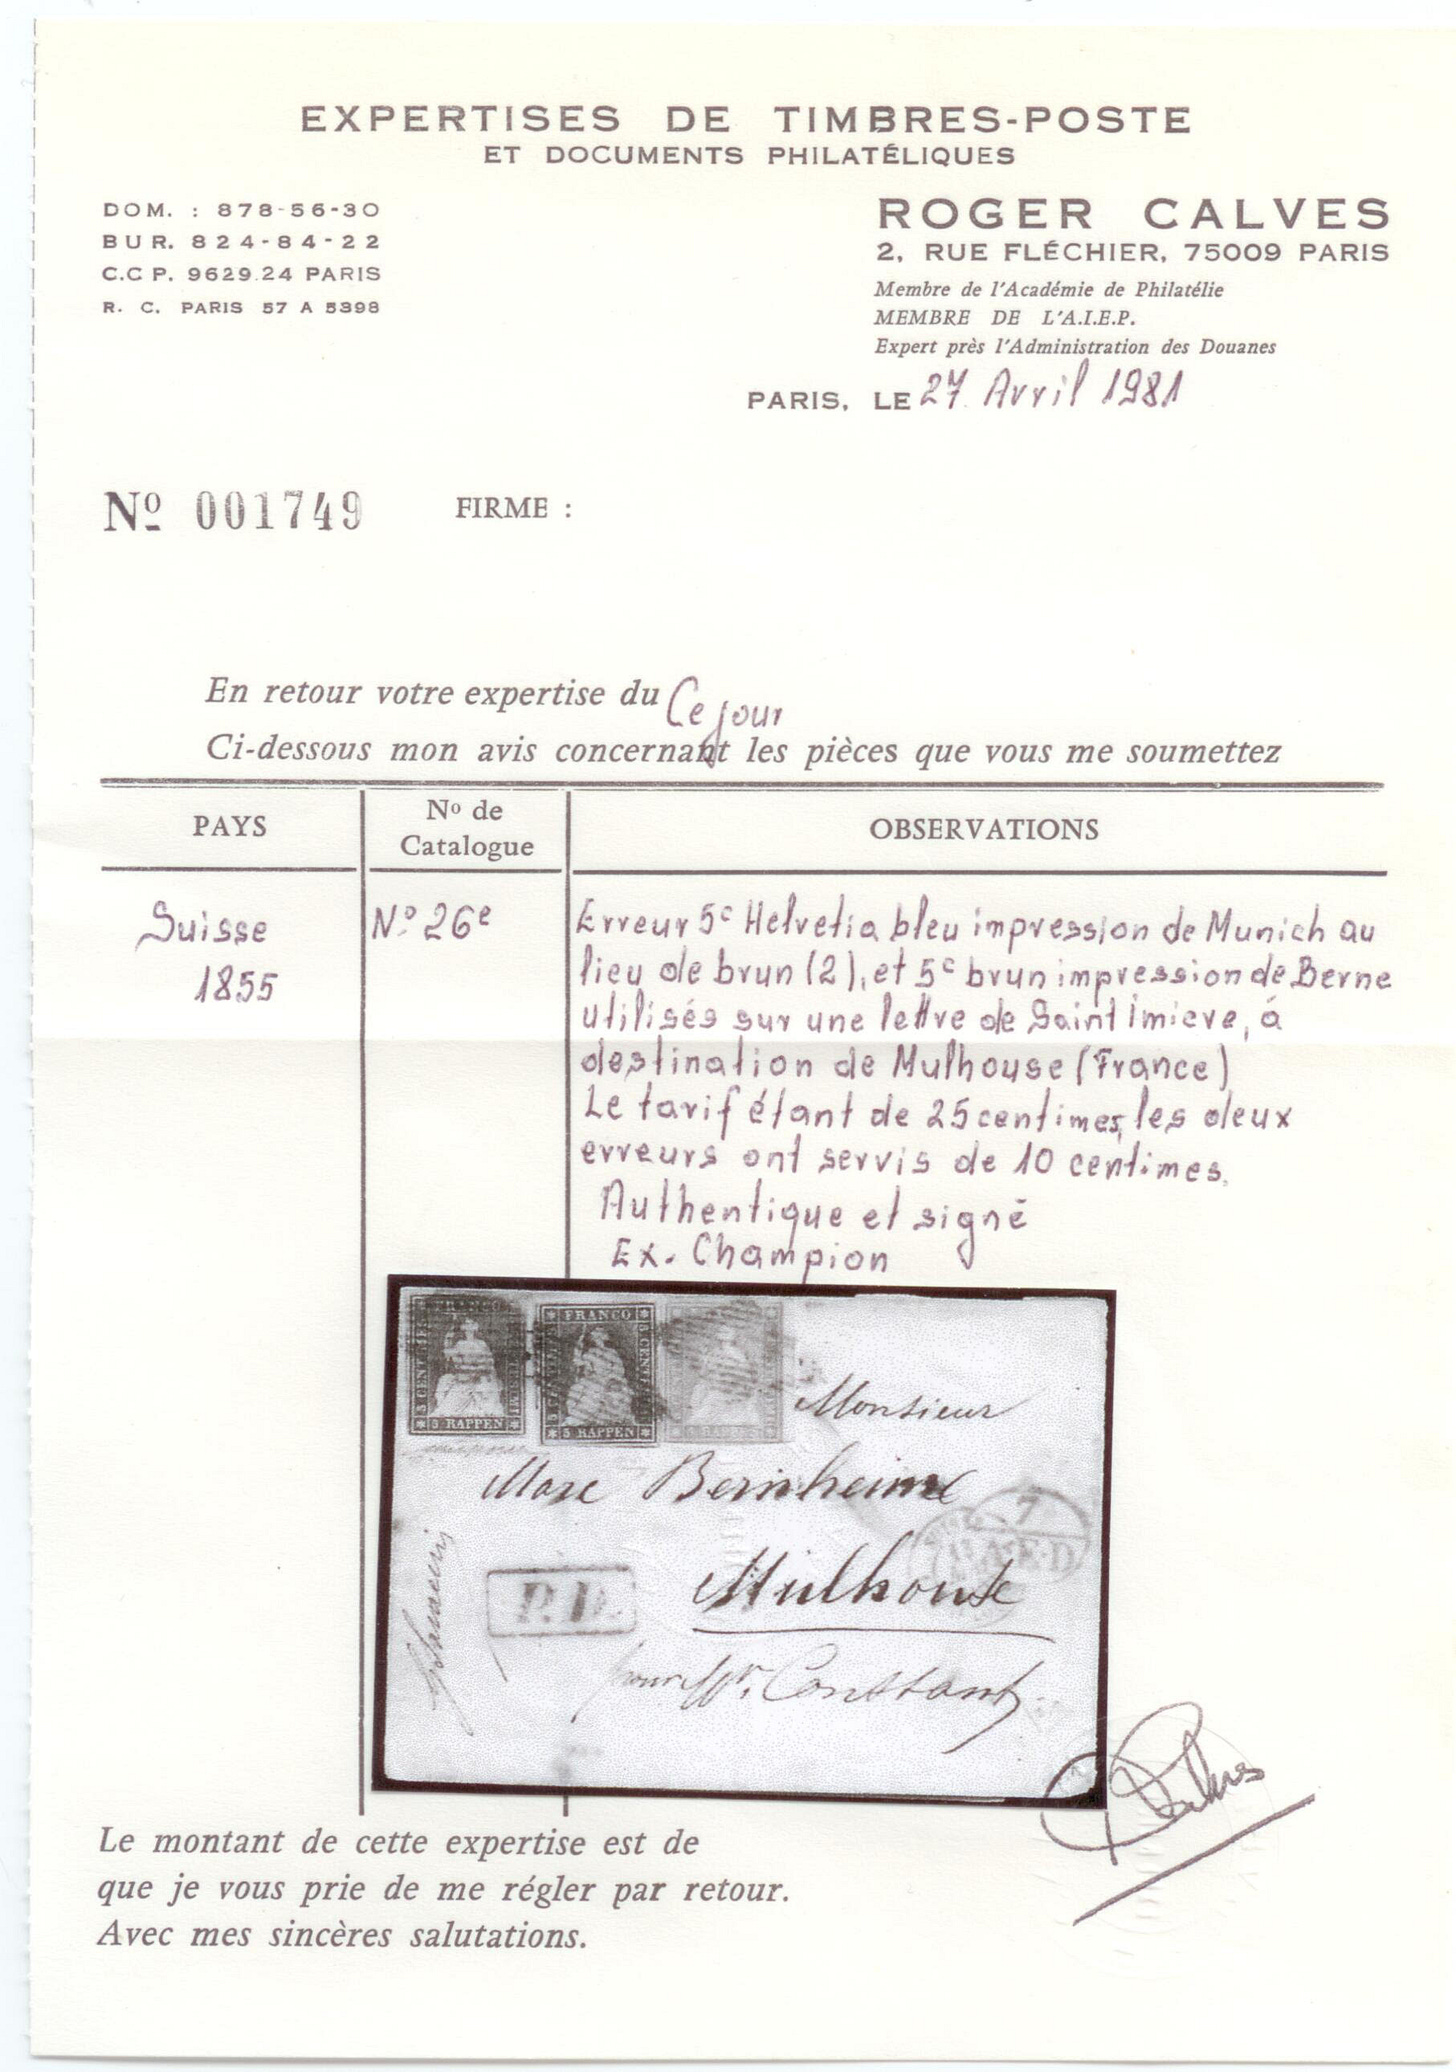 EXPERTISES DE TIMBRES-POSTE
ET DOCUMENTS PHILATÉLIQUES
DOM. : 878-56-30
BUR. 824-84-22
C.C P. 9629.24 PARIS
R. C. PARIS 57 A 5398
ROGER CALVES
2, RUE FLÉCHIER, 75009 PARIS
Membre de l'Académie de Philatélie
MEMBRE DE L'A.I.E.P.
Expert près l'Administration des Douanes
PARIS, LE 27 Avril 1981
Nº 001749
FIRME :
En retour votre expertise du Ce jour
Ci-dessous mon avis concernant les pièces que vous me soumettez
PAYS
Nº de
Catalogue
OBSERVATIONS
Suisse
1855
Nº 26e
Erreur 5c Helvetia bleu impression de Munich au
lieu de brun (2), et 5c brun impression de Berne
utilisés sur une lettre de Saint Imiere, à
destination de Mulhouse (France)
Le tarif étant de 25 centimes, les deux
erreurs ont servis de 10 centimes.
Authentique et signé
Ex. Champion
FRANCO
5 RAPPEN
FRANCO
5 RAPPEN
5 RAPPEN
Monsieur
Marc Bernheim
Mulhouse
7
A.E.D
P.D.
pour Mr. Constant
Le montant de cette expertise est de
que je vous prie de me régler par retour.
Avec mes sincères salutations.